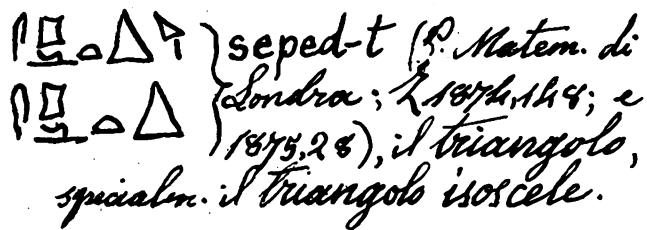 seped-t (P. Matem. di
Londra; Z 1874,148; e
1875,28), il triangolo,
specialm. il triangolo isoscele.